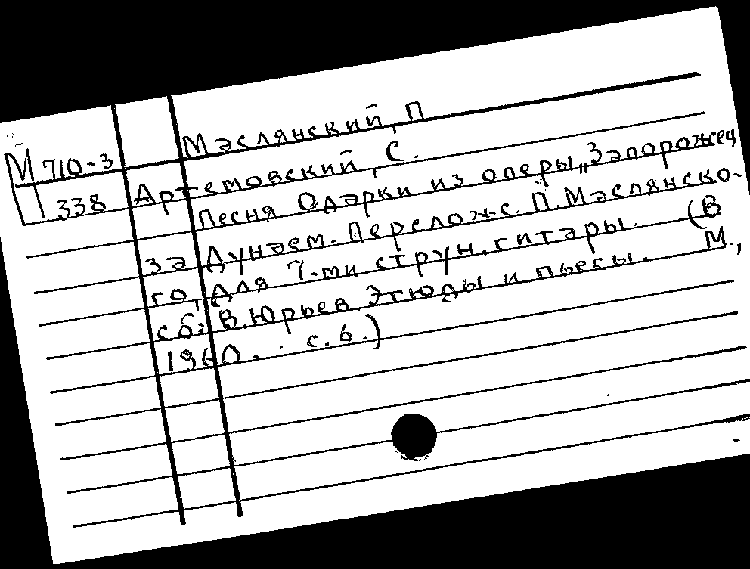 Маслянский, П
М 710-3
338
Артемовский, С.
Песня Одарки из оперы „Запорожец
за Дунаем. Перелож. П. Маслянско-
го, для 7-ми струн. гитары. (В
сб: В. Юрьев Этюды и пьесы. М.,
1960. с. 6.)